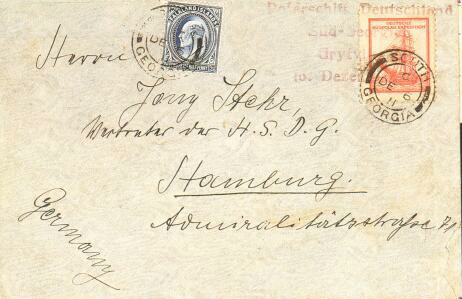 Polarschiff Deutschland
Süd-Georgien
Grytv
10. Dezem
FALKLAND ISLANDS
DEUTSCHE
SÜDPOLAR EXPEDITION
SOUTH
C
DE 6
11
GEORGIA
Herrn
Jony Stehr,
Vertreter der H. S. D. G.
Hamburg.
Admiralitätsstraße 71
Germany